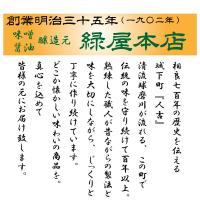 創業明治三十五年(一九〇二年)
味噌醤油 醸造元 緑屋本店
相良七百年の歴史を伝える
城下町『人吉』
清流球磨川が流れる、この町で
伝統の味を守り続けて百年以上。
熟練した職人が昔ながらの製法と
味を大切にしながら、じっくりと
丁寧に作り続けています。
どこか懐かしい味わいの商品を、
真心を込めて
皆様の元にお届け致します。